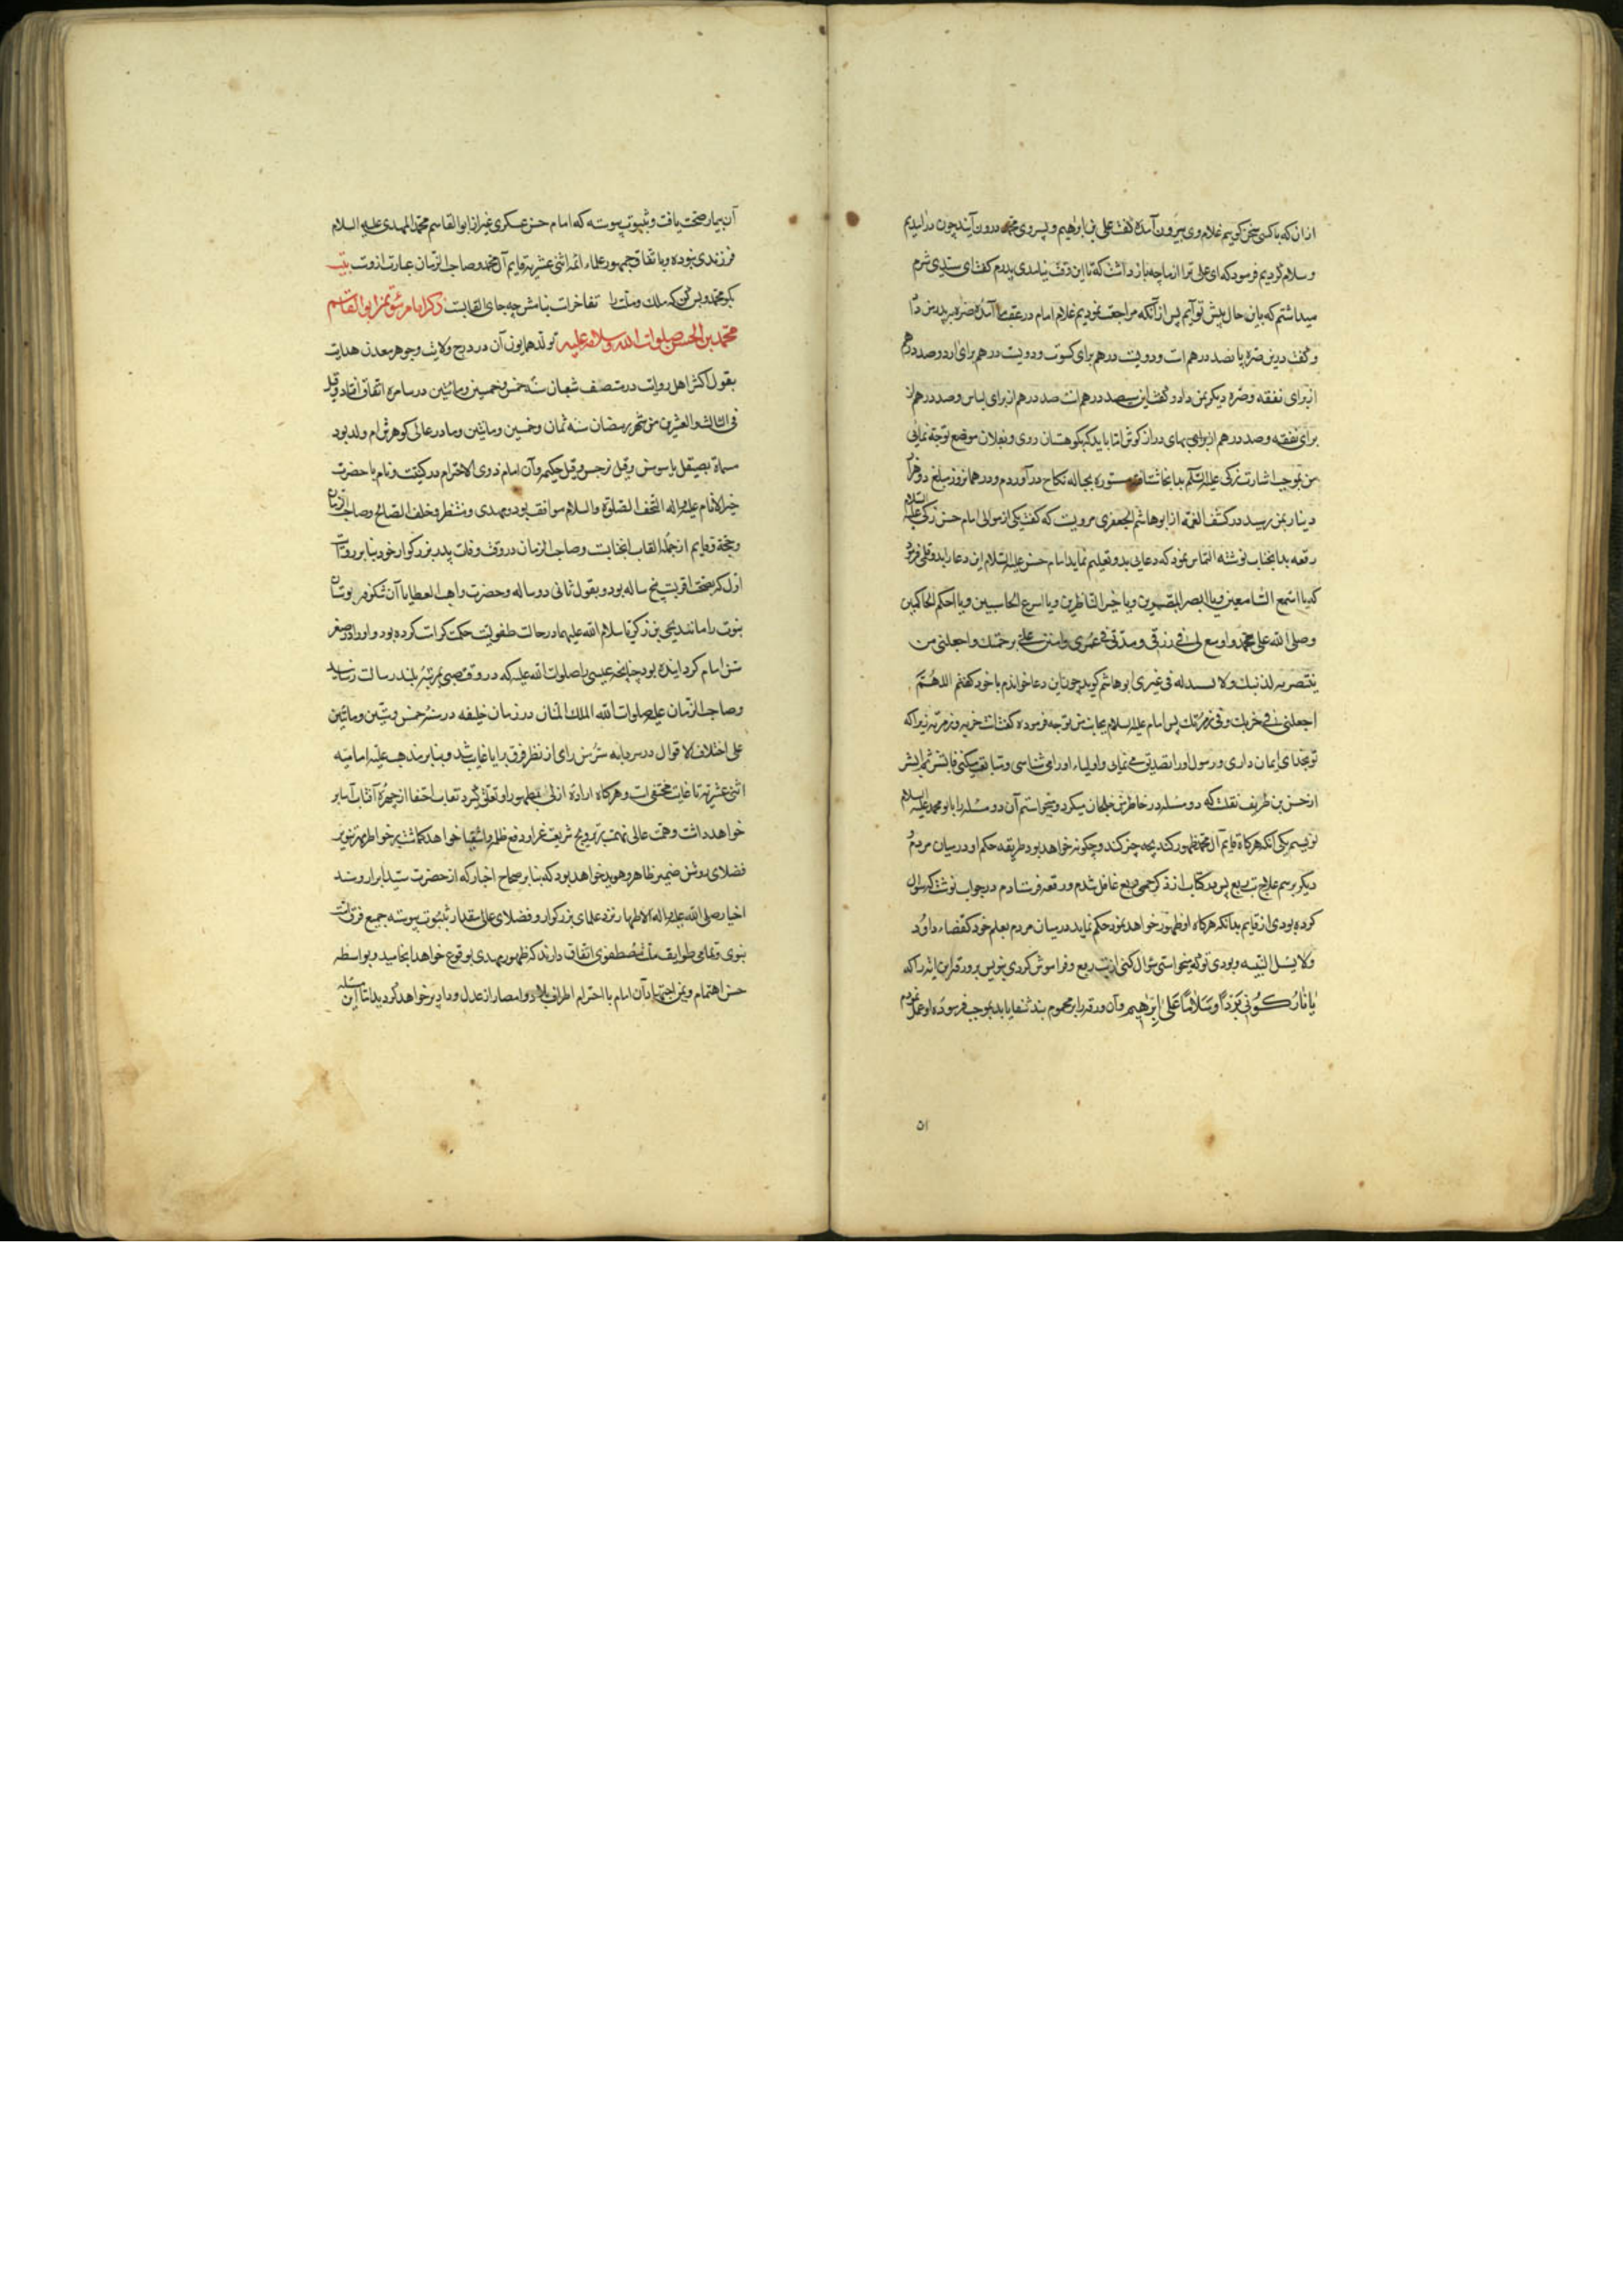 از آن که با کسی سخن گویم غلام وی بیرون آمده گفت علی بن ابراهیم و پسر وی محمد درون آیند چون درآمدیم
و سلام کردیم فرمود که ای علی ترا از ما چه باز داشت که تا این وقت نیامدی پدرم گفت ای سیدی شرم
میداشتم که باین حال پیش تو آیم پس از آنکه مراجعت نمودیم غلام امام در عقب ما آمده صره بپدر من داد
و گفت درین صره پانصد درهم است دویست درهم برای کسوت و دویست درهم برای آرد و صد درهم
از برای نفقه و صره دیگر بمن داد و گفت این سیصد درهم است صد درهم از برای لباس و صد درهم از
برای نفقه و صد درهم از برای بهای درازگوش اما باید که بکوهستان نروی و بفلان موضع توجه نمایی
من بموجب اشارت زکی علیه السلم بدانجا شتافته مستوره بحباله نکاح درآوردم و در همان روز مبلغ دو هزار
دینار بمن رسید در کشف الغمه از ابو هاشم الجعفری مرویست که گفت یکی از موالی امام حسن زکی علیه السلام
رقعه بدانجناب نوشته التماس نمود که دعایی بدو تعلیم نماید امام حسن علیه السلام این دعا را بدو قلمی فرمود
که یا اسمع السامعین و یا ابصر المبصرین و یا خیر الناظرین و یا اسرع الحاسبین و یا احکم الحاکمین
وصلی الله علی محمد و اوسع لی فی رزقی و مدلی فی عمری وامنن علی برحمتک واجعلنی من
ینتصر به لدینک ولا تستبدل به فی غیری ابو هاشم گوید چون این دعا خواندم با خود گفتم اللهم
اجعلنی فی حزبک و فی زمرتک پس امام علیه السلام بجانب من توجه فرموده گفت انت فی حزبه و زمرته زیرا که
تو بخدای ایمان داری و رسول او را تصدیق می نمایی و اولیاء او را می شناسی و متابعت میکنی فابشر ثم ابشر
از حسن بن ظریف نقلست که دو مسئله در خاطرش خلجان میکرد و میخواستم آن دو مسئله را بابو محمد علیه السلام
نویسم یکی آنکه هرگاه قایم آل محمد ظهور کند بچه چیز کند و چگونه خواهد بود طریقه حکم او در میان مردم
دیگر برسم علاج تب ربع پس در کتابت از ذکر حمی ربع غافل شدم و رقعه فرستادم در جواب نوشت که سؤال
کرده بودی از قایم بدانکه هرگاه او ظهور خواهد نمود حکم نماید در میان مردم بعلم خود کقضاء داود
ولا یسئل البینه و بودی تو که میخواستی سؤال کنی از تب ربع و فراموش کردی بنویس بر ورقه این آیه را که
یَا نَارُ کُونِی بَرْدًا وَسَلَامًا عَلَى إِبْرَاهِیمَ و آن ورقه را بر محموم بند شفا یابد بموجب فرموده او عمل نمودم
۵۱
آن بیمار صحت یافت و بثبوت پیوسته که امام حسن عسکری غیر از ابو القاسم محمد المهدی علیه السلام
فرزندی نبوده و باتفاق جمهور علماء ائمه اثنی عشریه قایم آل محمد و صاحب الزمان عبارت ازوست بیت
بگو محمد و بس کن که ملک و ملت را تفاخرات بنامش چه جای القابست ذکر امام مؤتمن ابو القاسم
محمد بن الحسن صلوات الله وسلامه علیه تولد همایون آن در درج ولایت و جوهر معدن هدایت
بقول اکثر اهل روایت در منتصف شعبان سنه خمس وخمسین ومأتین در سامره اتفاق افتاد و قیل
فی الثالث والعشرین من شهر رمضان سنه ثمان وخمسین ومأتین و مادر عالی گوهرش ام ولد بود
مسماة بصیقل یا سوسن وقیل نرجس وقیل حکیمه و آن امام ذوی الاحترام در کنیت و نام با حضرت
خیر الانام علیه و اله التحف الصلوة والسلام موافق بود و مهدی و منتظر و خلف الصالح و صاحب الزمان
و حجة و قایم از جمله القاب آنجنابست و صاحب الزمان در وقت وفات پدر بزرگوار خود بنابر روایت
اول که بصحت اقربست پنج ساله بود و بقول ثانی دو ساله و حضرت واهب العطایا آن شکوفه بوستان
نبوت را مانند یحیی بن زکریا سلام الله علیهما در حالت طفولیت حکمت کرامت کرده بود و او را در صغر
سن امام گردانیده بود چنانچه عیسی را صلوات الله علیه که در وقت صبی بمرتبه بلند رسالت رسانید
و صاحب الزمان علیه صلوات الله الملک المنان در زمان خلیفه در سنه خمس وستین ومأتین
علی اختلاف الاقوال در سردابه سر من رای از نظر فرق برایا غایب شد و بنابر مذهب علیه امامیه
اثنی عشریه تا غایت مختفی است و هرگاه اراده ازلی بظهور او تعلق گیرد نقاب اختفا از چهره آفتاب آسا بر
خواهد داشت و همت عالی نهمت بر ترویج شریعت غرا و دفع ظلم و اشقیا خواهد گماشت بر خواطر مهر تنویر
فضلای روشن ضمیر ظاهر و هویدا خواهد بود که بنابر صحاح اخبار که از حضرت سید ابرار و سند
اخیار صلی الله علیه و اله الاطهار نزد علمای بزرگوار و فضلای عالی مقدار بثبوت پیوسته جمیع فرق امت
نبوی و تمامی طوایف ملت مصطفوی اتفاق دارند که ظهور مهدی بوقوع خواهد انجامید و بواسطه
حسن اهتمام و یمن اجتهاد آن امام با احترام اطراف بلاد و امصار از عدل و داد پر خواهد گردید اما این مسئله